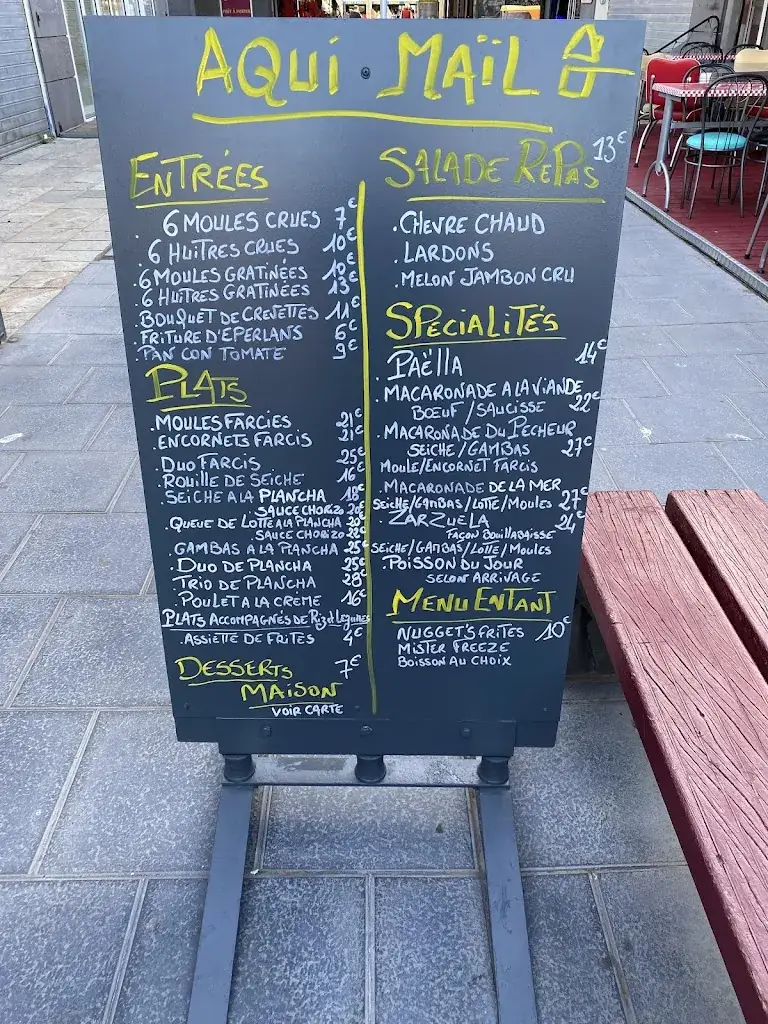 AQUI MAÏL
ENTRÉES
. 6 MOULES CRUES 7€
. 6 HUITRES CRUES 10€
. 6 MOULES GRATINÉES 10€
. 6 HUITRES GRATINÉES 13€
. BOUQUET DE CREVETTES 11€
. FRITURE D'EPERLANS 6€
. PAN CON TOMATE 9€
PLATS
. MOULES FARCIES 21€
. ENCORNETS FARCIS 21€
. DUO FARCIS 25€
. ROUILLE DE SEICHE 16€
. SEICHE A LA PLANCHA 18€
SAUCE CHORIZO 20€
. QUEUE DE LOTTE A LA PLANCHA 20€
SAUCE CHORIZO 22€
. GAMBAS A LA PLANCHA 25€
. DUO DE PLANCHA 25€
. TRIO DE PLANCHA 28€
. POULET A LA CRÈME 16€
PLATS ACCOMPAGNÉS DE Riz et Légumes
. ASSIETTE DE FRITES 4€
DESSERTS 7€
MAISON
VOIR CARTE
SALADE REPAS 13€
. CHEVRE CHAUD
. LARDONS
. MELON JAMBON CRU
SPÉCIALITÉS
. PAËLLA 14€
. MACARONADE A LA VIANDE
BŒUF / SAUCISSE 22€
. MACARONADE DU PECHEUR
SEICHE / GAMBAS 27€
MOULE/ENCORNET FARCIS
. MACARONADE DE LA MER
SEICHE/GAMBAS/LOTTE/MOULES 27€
. ZARZUELA 24€
FAÇON BOUILLABAISSE
SEICHE/GAMBAS/LOTTE/MOULES
. POISSON DU JOUR
SELON ARRIVAGE
MENU ENFANT
NUGGET'S FRITES 10€
MISTER FREEZE
BOISSON AU CHOIX